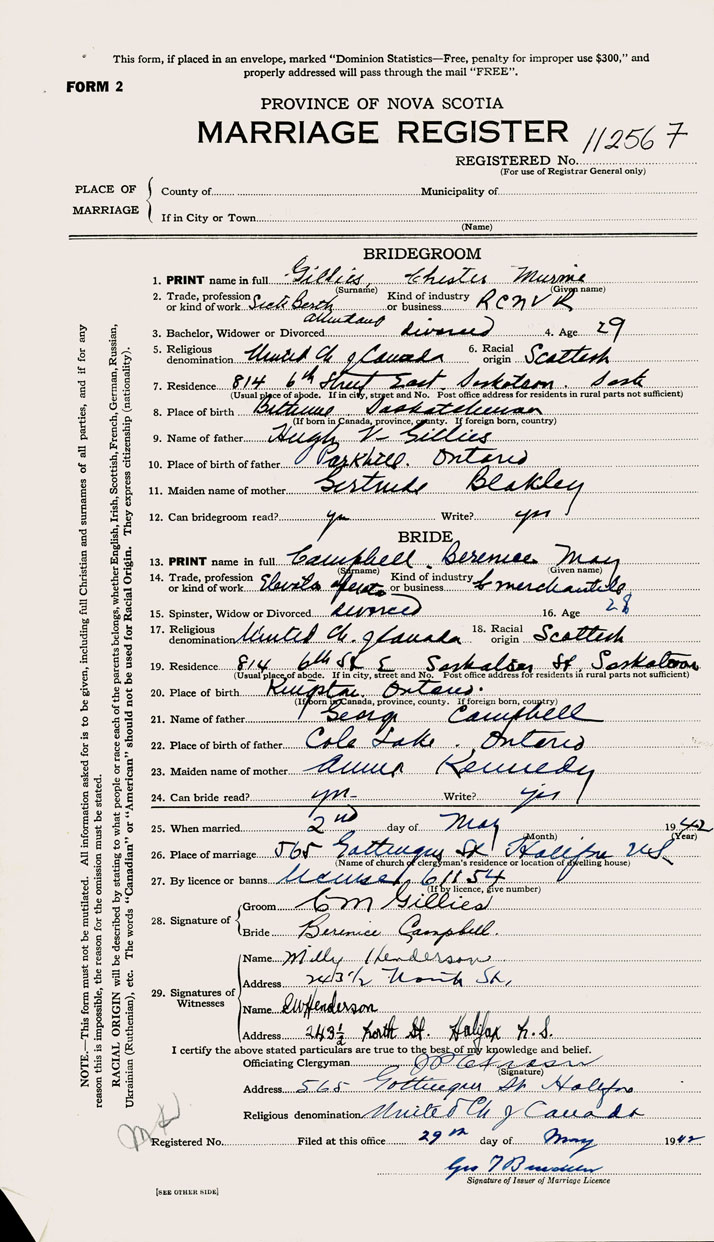 This form, if placed in an envelope, marked "Dominion Statistics—Free, penalty for improper use $300," and
properly addressed will pass through the mail "FREE".
FORM 2
PROVINCE OF NOVA SCOTIA
MARRIAGE REGISTER 112567
REGISTERED No.
(For use of Registrar General only)
PLACE OF MARRIAGE
County of Municipality of
If in City or Town
(Name)
BRIDEGROOM
1. PRINT name in full Gillies, Chester
(Surname) (Given name)
2. Trade, profession or kind of work Sick Berth attendant Kind of industry or business R C N V R
3. Bachelor, Widower or Divorced divorced 4. Age 29
5. Religious denomination United Ch of Canada 6. Racial origin Scottish
7. Residence 814 6th Street East, Saskatoon. Sask
(Usual place of abode. If in city, street and No. Post office address for residents in rural parts not sufficient)
8. Place of birth Bethune Saskatchewan
(If born in Canada, province, county. If foreign born, country)
9. Name of father Hugh V Gillies
10. Place of birth of father Parkhill. Ontario
11. Maiden name of mother Gertrude Blakley
12. Can bridegroom read? yes Write? yes
BRIDE
13. PRINT name in full Campbell, Berenice May
(Surname) (Given name)
14. Trade, profession or kind of work Elevator Kind of industry or business merchantile
15. Spinster, Widow or Divorced divorced 16. Age 28
17. Religious denomination United Ch. of Canada 18. Racial origin Scottish
19. Residence 814 6th St E Saskatoon St. Saskatoon
(Usual place of abode. If in city, street and No. Post office address for residents in rural parts not sufficient)
20. Place of birth Kingston, Ontario.
(If born in Canada, province, county. If foreign born, country)
21. Name of father George Campbell
22. Place of birth of father Cole Lake, Ontario
23. Maiden name of mother Kennedy
24. Can bride read? yes Write? yes
25. When married 2nd day of May 1942
(Month) (Year)
26. Place of marriage 565 Gottingen St Halifax N.S.
(Name of church or clergyman's residence or location of dwelling house)
27. By licence or banns 61154
(If by licence, give number)
28. Signature of
Groom C M Gillies
Bride Berenice Campbell.
29. Signatures of Witnesses
Name Milly Henderson
Address 243 1/2 North St,
Name Henderson
Address 243 1/2 North St. Halifax N.S.
I certify the above stated particulars are true to the best of my knowledge and belief.
Officiating Clergyman
(Signature)
Address 565 Gottingen St Halifax
Religious denomination United Ch of Canada
Registered No. Filed at this office 29th day of May 1942
Geo
Signature of Issuer of Marriage Licence
[SEE OTHER SIDE]
NOTE.—This form must not be mutilated. All information asked for is to be given, including full Christian and surnames of all parties, and if for any
reason this is impossible, the reason for the omission must be stated.
RACIAL ORIGIN will be described by stating to what people or race each of the parents belongs, whether English, Irish, Scottish, French, German, Russian,
Ukrainian (Ruthenian), etc. The words "Canadian" or "American" should not be used for Racial Origin. They express citizenship (nationality).